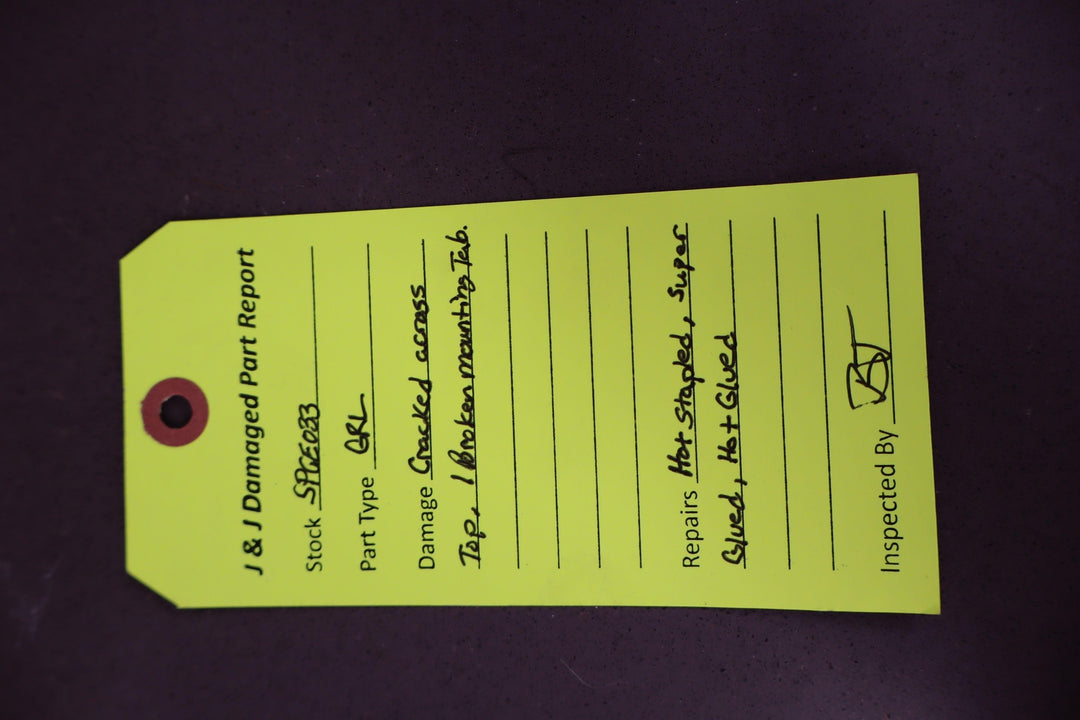 J & J Damaged Part Report
Stock SPCE033
Part Type GRL
Damage Cracked across
Top, 1 Broken mounting Tab.
Repairs Hot Stapled, Super
Glued, Hot Glued
Inspected By